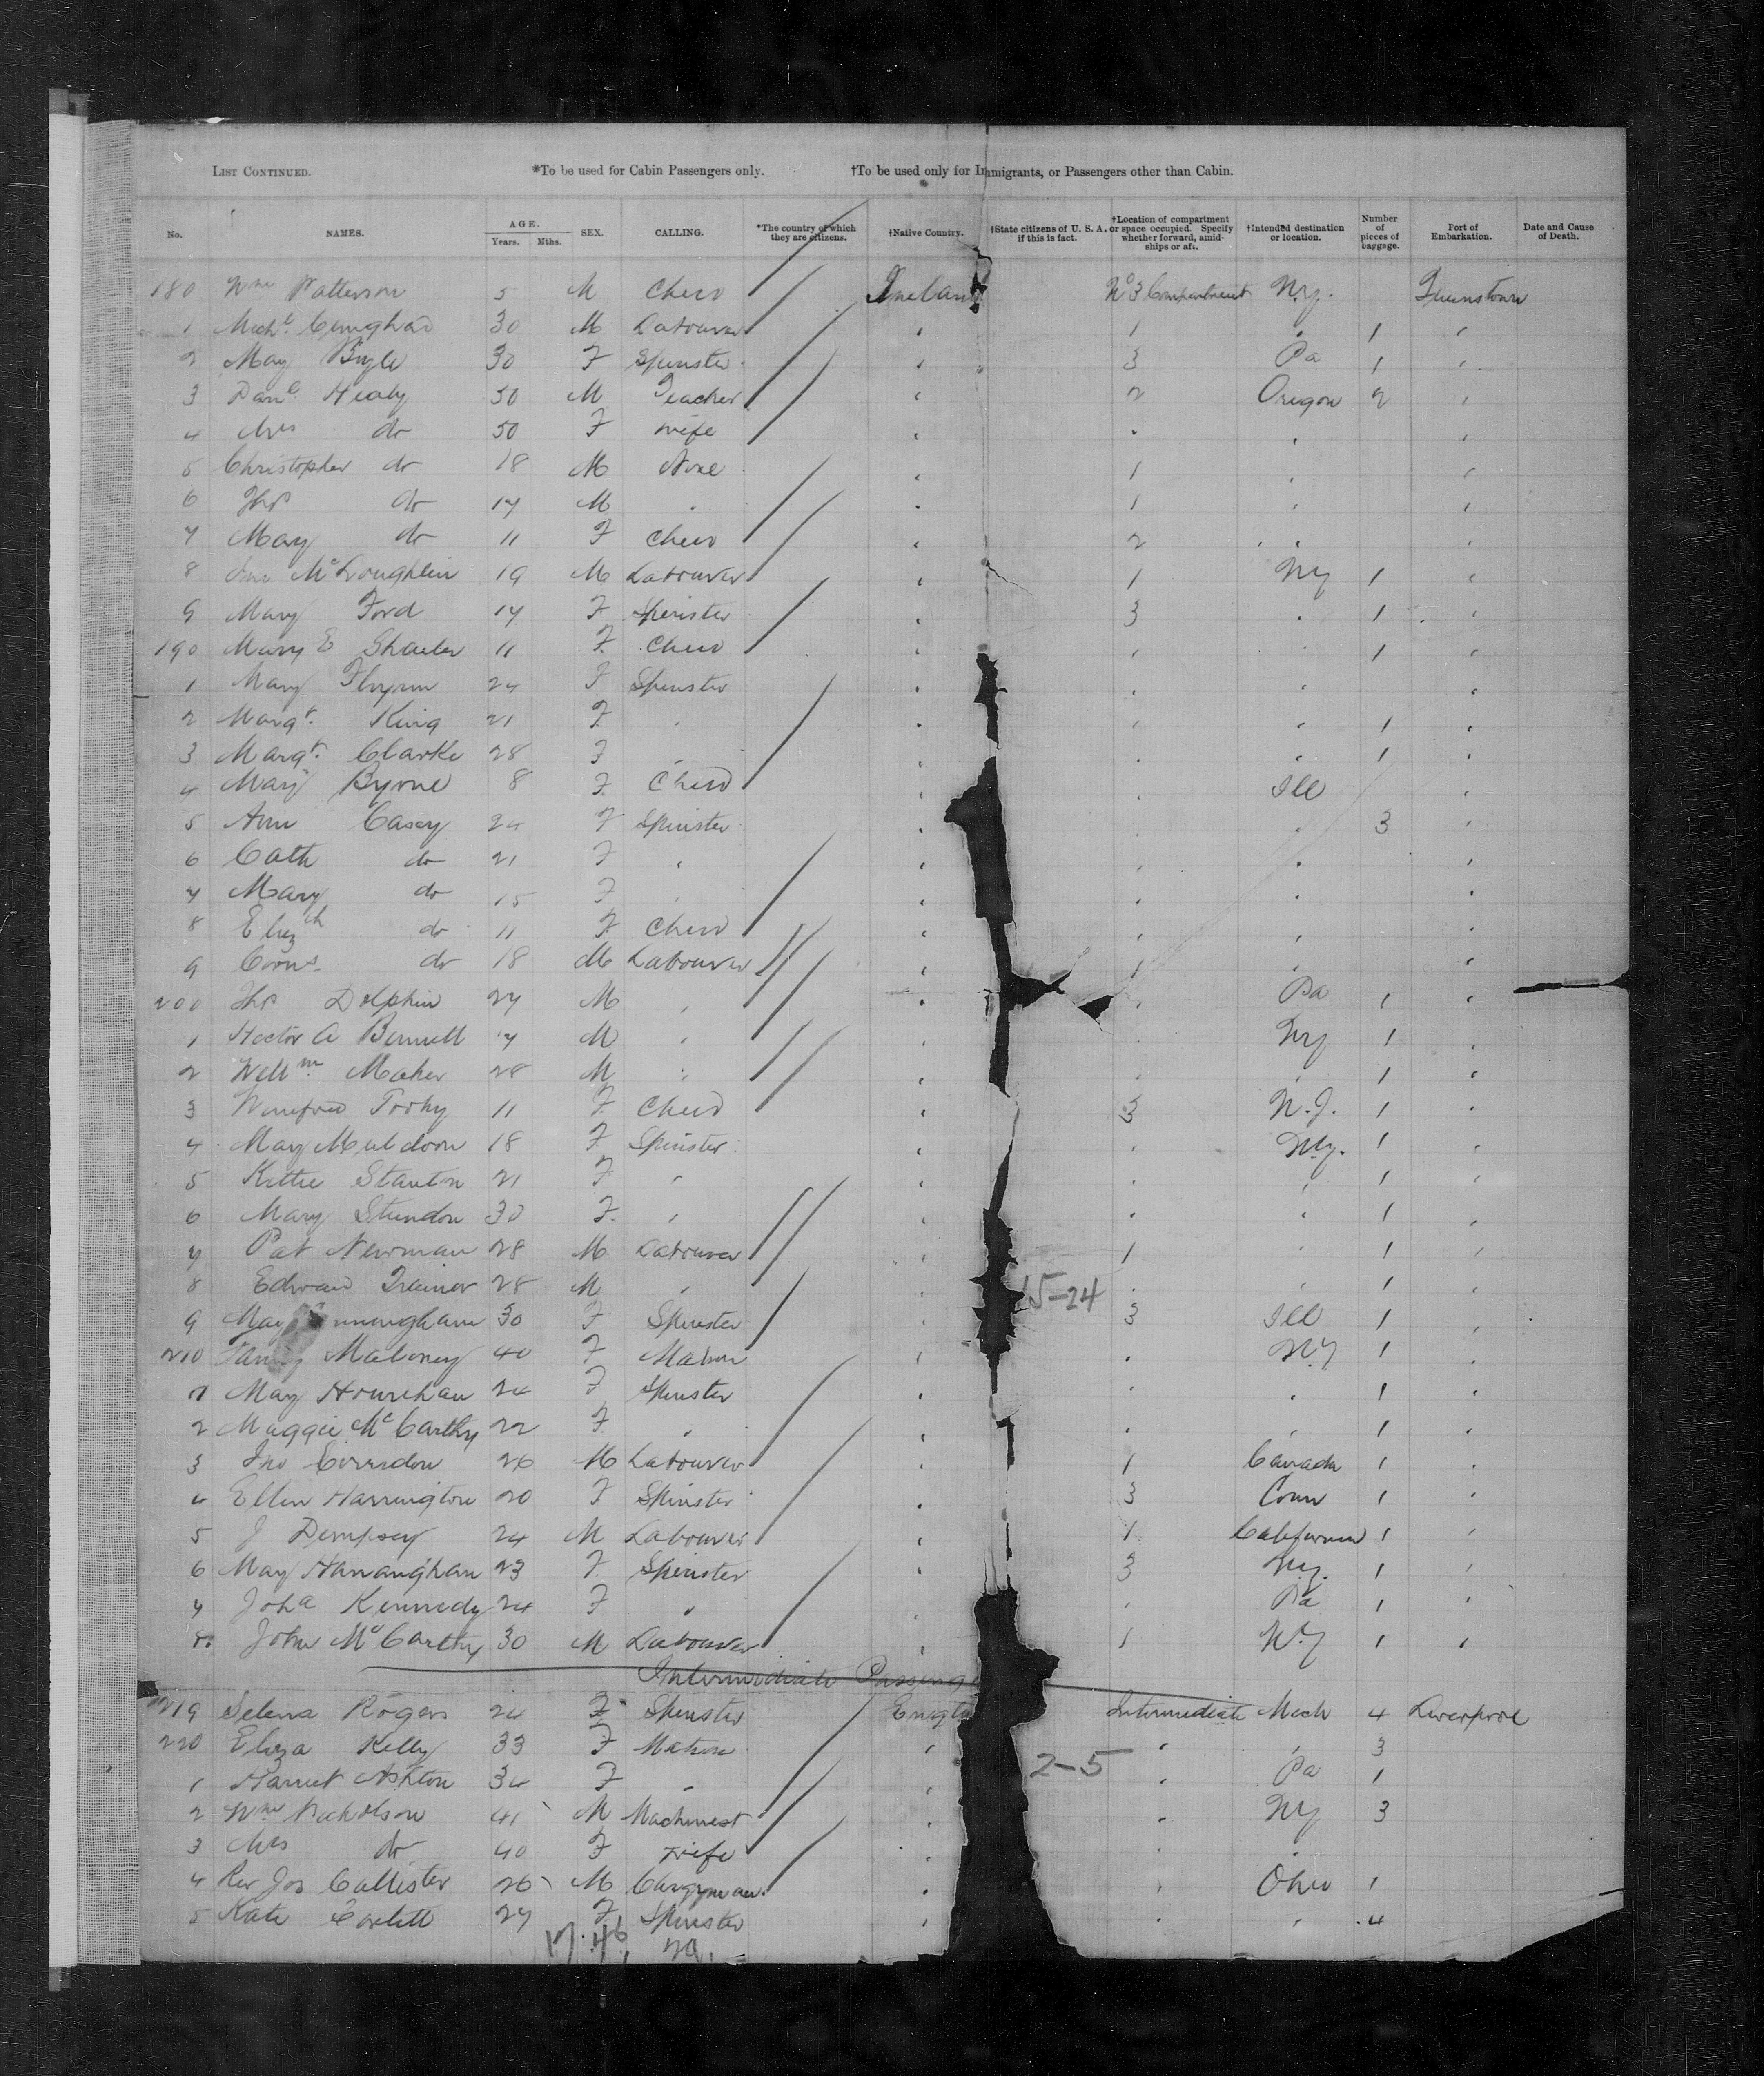 LIST CONTINUED. *To be used for Cabin Passengers only. †To be used only for Immigrants, or Passengers other than Cabin.
No. NAMES. AGE. Years. Mths. SEX. CALLING. *The country of which they are citizens. †Native Country. †State citizens of U. S. A. if this is fact. †Location of compartment or space occupied. Specify whether forward, amidships or aft. †Intended destination or location. Number of pieces of baggage. Port of Embarkation. Date and Cause of Death.
180 Wm Patterson 5 M Child Ireland No 3 Compartment N.y. Queenstown
1 Michl 30 M Labourer " 1 " 1 "
2 May Boyle 30 F Spinster " 3 Pa 1 "
3 Danl Healy 50 M Teacher " 2 Oregon 2 "
4 Mrs do 50 F wife " " " "
5 Christopher do 18 M None " 1 " "
6 Thos do 17 M " " 1 " "
7 Mary do 11 F Child " 2 " "
8 McLoughlin 19 M Labourer " 1 Ny 1 "
9 Mary Ford 17 F Spinster " 3 " 1 "
190 Mary E 11 F Child " " " 1 "
1 Mary Flynn 24 F Spinster " " " "
2 Margt King 21 F " " " " 1 "
3 Margt Clarke 28 F " " " " 1 "
4 Mary Byrne 8 F Child " " Ill "
5 Ann Casey 24 F Spinster " " " 3 "
6 Cath do 21 F " " " " "
7 Mary do 15 F " " " " "
8 Elizth do 11 F Child " " " "
9 Corns do 18 M Labourer " 1 " "
200 Thos Dolphin 27 M " " " Pa 1 "
1 Hector A Bennett 17 M " " " Ny 1 "
2 Willm Maher 28 M " " " " 1 "
3 Winifred Toohy 11 F Child " 3 N.J. 1 "
4 May Muldoon 18 F Spinster " " N.y. 1 "
5 Kittie Stanton 21 F " " " " 1 "
6 Mary Stundon 30 F " " " " 1 "
7 Pat Newman 28 M Labourer " 1 " 1 "
8 Edward Treanor 28 M " " " " 1 "
15-24
9 May Cunningham 30 F Spinster " 3 Ill 1 "
210 Maloney 40 F Matron " " N.Y 1 "
1 May Hourihan 24 F Spinster " " " 1 "
2 Maggie McCarthy 22 F " " " " 1 "
3 Jno Corridon 26 M Labourer " 1 Canada 1 "
4 Ellen Harrington 20 F Spinster " 3 Conn 1 "
5 J Dempsey 24 M Labourer " 1 California 1 "
6 May Hanranghan 23 F Spinster " 3 N.y. 1 "
7 Joha Kennedy 24 F " " " Pa 1 "
8. John McCarthy 30 M Labourer " 1 N.Y 1 "
Intermediate Passeng
219 Selena Rogers 24 F Spinster Engla Intermediate Mich 4 Liverpool
220 Eliza Kelly 33 F Matron " " " 3
2-5
1 Harriet Ashton 34 F " " " Pa 1
2 Wm Nicholson 41 M Machinest " " Ny 3
3 Mrs do 40 F wife " " "
4 Rev Jos Callister 26 M Clargyman " " Ohio 1
5 Kate Corlett 27 F Spinster " " " 4
17. 46 29.